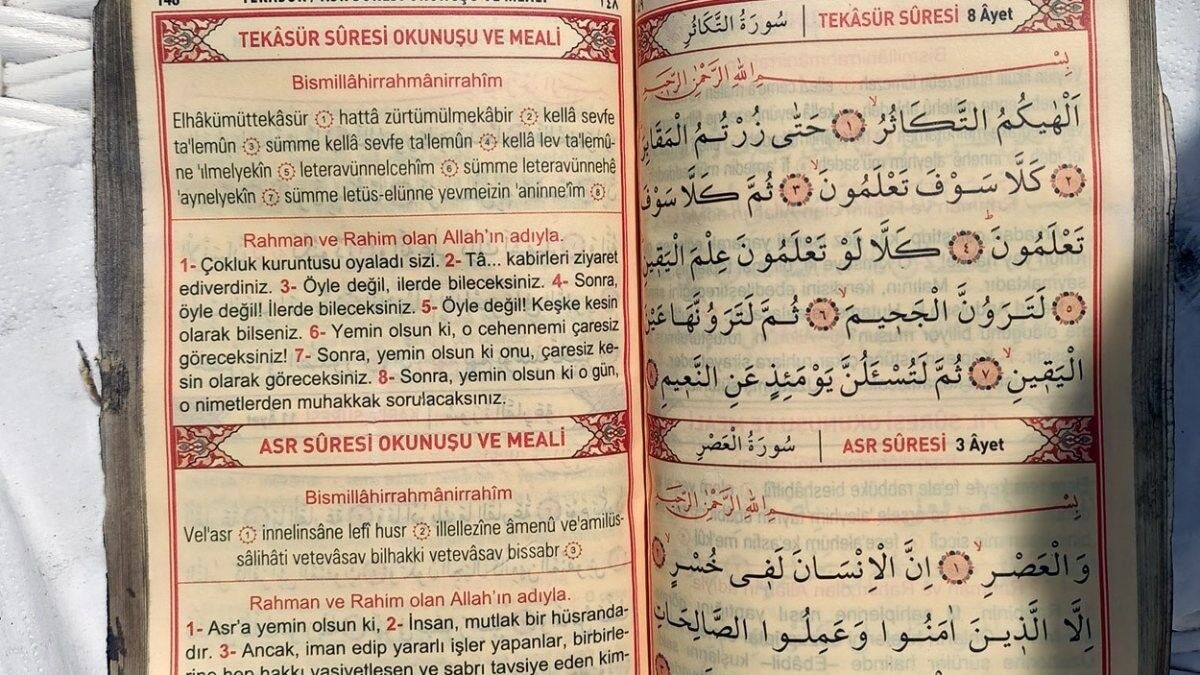 148
TEKÂSÜR / ASR SÛRESİ OKUNUŞU VE MEALİ
١٤٨
TEKÂSÜR SÛRESİ OKUNUŞU VE MEALİ
Bismillâhirrahmânirrahîm
Elhâkümüttekâsür 1 hattâ zürtümülmekâbir 2 kellâ sevfe
ta'lemûn 3 sümme kellâ sevfe ta'lemûn 4 kellâ lev ta'lemû-
ne 'ılmelyekîn 5 leteravünnelcehîm 6 sümme leteravünnehê
'aynelyekîn 7 sümme letüs-elünne yevmeizin 'aninne'îm 8
Rahman ve Rahim olan Allah'ın adıyla.
1- Çokluk kuruntusu oyaladı sizi. 2- Tâ... kabirleri ziyaret
ediverdiniz. 3- Öyle değil, ilerde bileceksiniz. 4- Sonra,
öyle değil! İlerde bileceksiniz. 5- Öyle değil! Keşke kesin
olarak bilseniz. 6- Yemin olsun ki, o cehennemi çaresiz
göreceksiniz! 7- Sonra, yemin olsun ki onu, çaresiz ke-
sin olarak göreceksiniz. 8- Sonra, yemin olsun ki o gün,
o nimetlerden muhakkak sorulacaksınız.
ASR SÛRESİ OKUNUŞU VE MEALİ
Bismillâhirrahmânirrahîm
Vel'asr 1 innelinsâne lefî husr 2 illellezîne âmenû ve'amilüs-
sâlihâti vetevâsav bilhakki vetevâsav bissabr 3
Rahman ve Rahim olan Allah'ın adıyla.
1- Asr'a yemin olsun ki, 2- İnsan, mutlak bir hüsranda-
dır. 3- Ancak, iman edip yararlı işler yapanlar, birbirle-
rine hep hakkı vasiyetleşen ve sabrı tavsiye eden kim-
سُورَةُ التَّكَاثُرِ | TEKÂSÜR SÛRESİ 8 Âyet
بِسْمِ اللّٰهِ الرَّحْمٰنِ الرَّحِيمِ
اَلْهٰيكُمُ التَّكَاثُرُۙ ١ حَتّٰى زُرْتُمُ الْمَقَابِرَ
٢ كَلَّا سَوْفَ تَعْلَمُونَۙ ٣ ثُمَّ كَلَّا سَوْفَ
تَعْلَمُونَۜ ٤ كَلَّا لَوْ تَعْلَمُونَ عِلْمَ الْيَقٖينِ
٥ لَتَرَوُنَّ الْجَحٖيمَۙ ٦ ثُمَّ لَتَرَوُنَّهَا عَيْنَ
الْيَقٖينِۙ ٧ ثُمَّ لَتُسْـَٔلُنَّ يَوْمَئِذٍ عَنِ النَّعٖيمِ
سُورَةُ الْعَصْرِ | ASR SÛRESİ 3 Âyet
بِسْمِ اللّٰهِ الرَّحْمٰنِ الرَّحِيمِ
وَالْعَصْرِۙ ١ اِنَّ الْاِنْسَانَ لَفٖى خُسْرٍۙ
اِلَّا الَّذٖينَ اٰمَنُوا وَعَمِلُوا الصَّالِحَاتِ